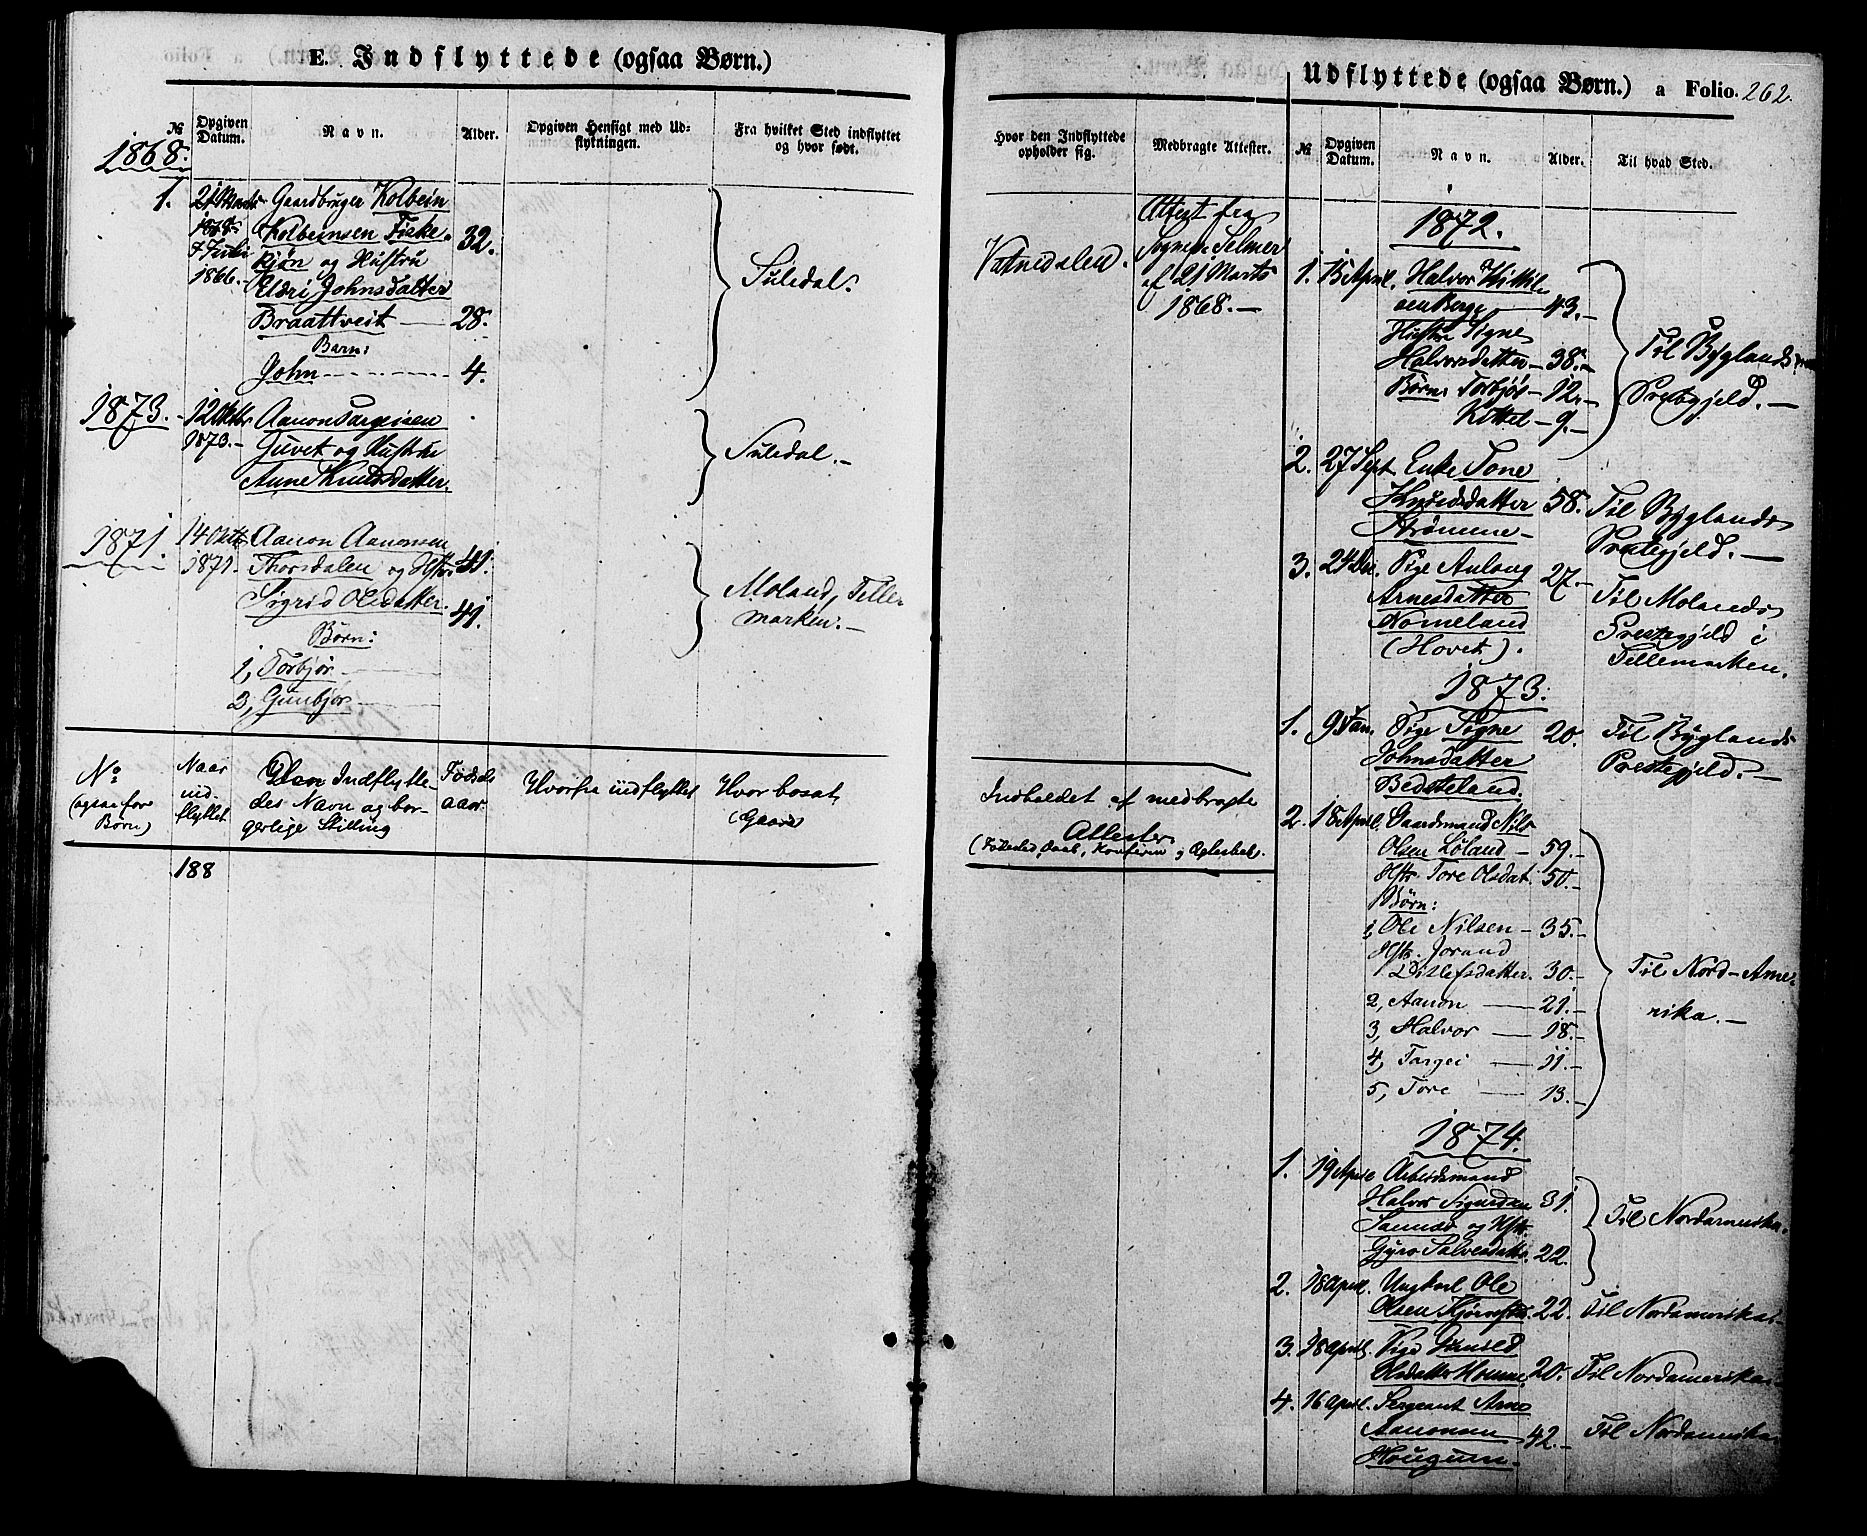 E. Indflyttede (ogsaa Børn.)
№
Opgiven Datum.
Navn.
Alder.
Opgiven Hensigt med Ud=
flytningen.
Fra hvilket Sted indflyttet
og hvor født.
1868.
1.
21 Marts
1868
Juli
1866.
Gaardbruger Kolbein
Kolbeinsen Fiske
kjøn og Hustru
Eldri Johnsdatter
Braattveit
Barn:
John
32.
28.
4.
Suledal.
1873.
12 Oktbr
1873.
Aanon Targeisen
Juvet og Hustru
Anne Knudsdatter.
Suledal.
1871.
14 Oktbr
1871.
Aanon Aanonsen
Thorsdalen og Hstr
Sigrid Olsdatter.
Børn:
1, Torbjør
2, Gunbjør
41.
41.
Moland, Telle
marken.
No
(ogsaa for
Børn)
Naar
ind-
flyttet
Den Indflytte-
des Navn og bor-
gerlige Stilling
Fødsels
aar.
Hvorfra indflyttet
Hvor bosat,
(Gaard)
188
Udflyttede (ogsaa Børn.) a Folio. 262.
Hvor den Indflyttede
opholder sig.
Medbragte Attester.
№
Opgiven
Datum.
Navn.
Alder.
Til hvad Sted.
Vatnedalen.
Attest fra
Sognepr. Selmer
af 21 Marts
1868.
Indholdet af medbragte
Attester
(Fødested, Daab, Konfirm
1872.
1. 15 April. Halvor Kittil
sen Berge 43.
Hustru Signe
Halvorsdatter 38.
Børn: Torbjør 12.
Kittel 9.
Til Byglands
Præstegjeld.
2. 27 Sept. Enke Tone
Knudsdatter 58.
Strømme
Til Byglands
Prestegjeld.
3. 24 Dec. Pige Aulaug 27.
Arnesdatter
Nomeland
(Hovet).
Til Molands
Prestegjeld i
Tellemarken.
1873.
1. 9 Jan. Pige Signe 20.
Johnsdatter
Bedsteland.
Til Byglands
Prestegjeld.
2. 18 April. Gaardmand Nils
Olsen Løland 59.
Hstr. Tore Olsdat. 50.
Børn:
1, Ole Nilsen 35.
Hstr. Jorand
Ditlefsdatter. 30.
2, Aanon 21.
3, Halvor 18.
4, Targei 11.
5, Tore 13.
Til Nord-Ame-
rika.
1874.
1. 19 April Arbeidsmand
Halvor Sigurdsen 31.
og Hstr.
Gyro Salvesdatter 22.
Til Nordamerika.
2. 18 April. Ungkarl Ole
Olsen 22. Til Nordamerika.
3. 18 April. Pige Gunild
Olsdatter Homme 20. Til Nordamerika.
4. 16 April. Sergeant Arne
Aanonsen 42. Til Nordamerika
Hougum.